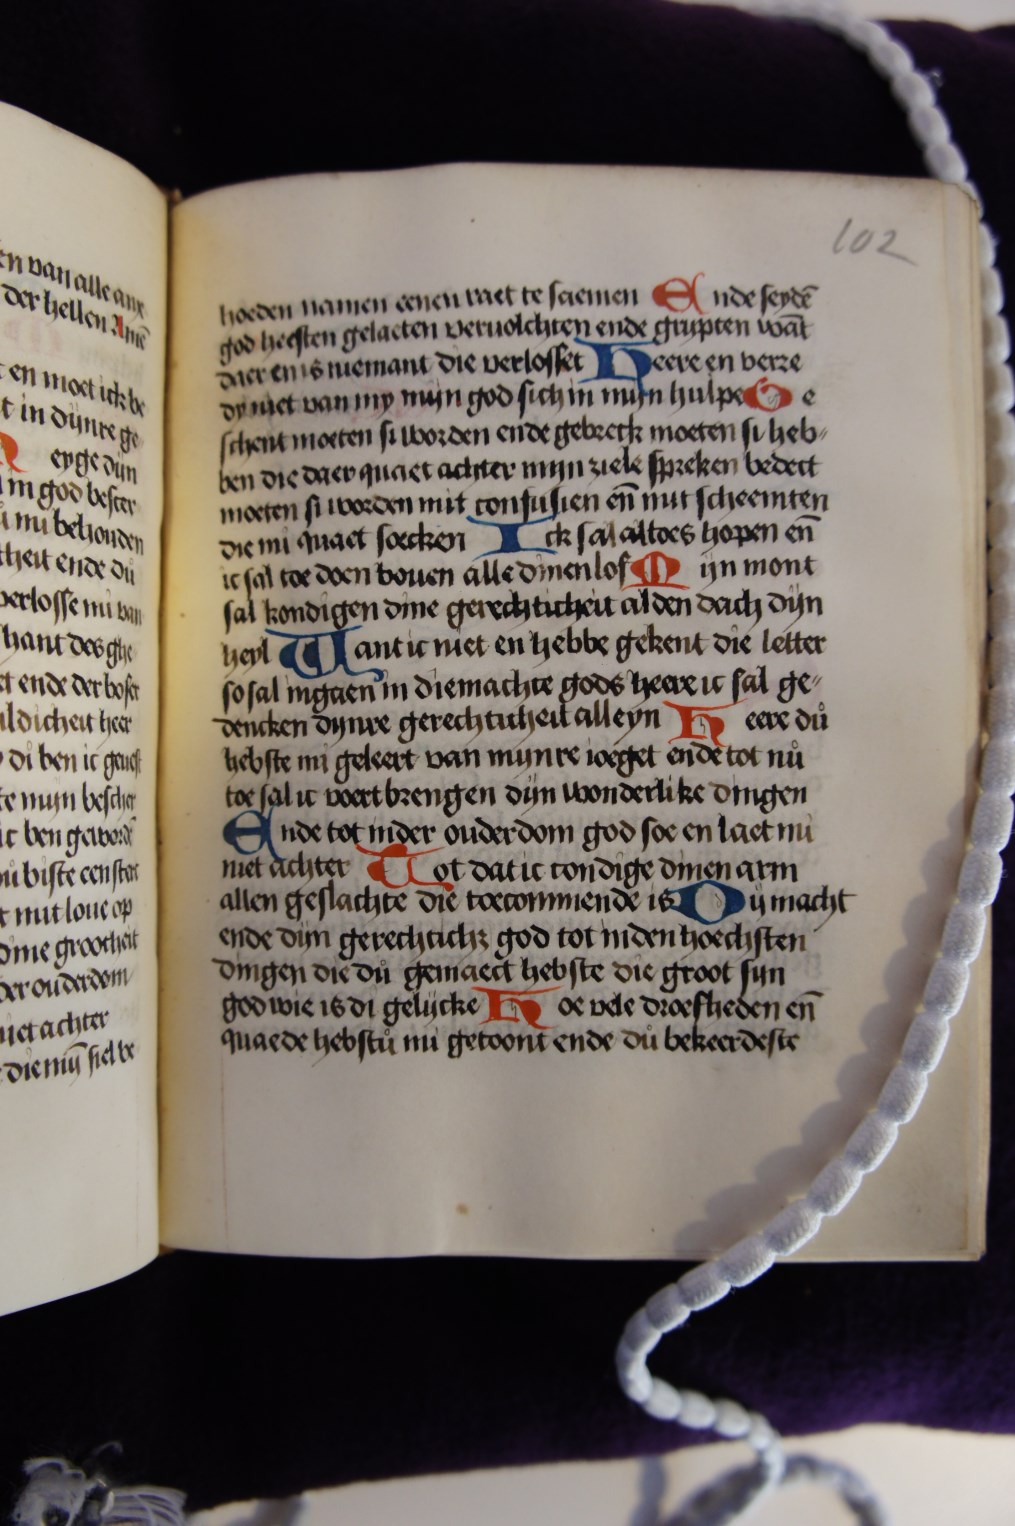 en van alle anx
der hellen Amē
en moet ick be
t in dijnre ge
eyge dijn
m god bescer
mi behouden
theit ende dů
verlosse mi van
hant des ghe
et ende der boser
uldicheit heer
di ben ic geuest
te mijn bescher
ic ben gewordē
ů biste een starc
t mit loue op
dine grootheit
der ouderdom
niet achter
die mijn siel be
102
hoeden namen eenen raet te samen Ende seydē
god heeften gelaeten veruolchten ende grijpten wāt
daer en is niemant die verlosset Heere en verre
dy niet van my mijn god sich in mijn hulpe Ge
schent moeten si worden ende gebreck moeten si heb-
ben die daer quaet achter mijn ziele spreken bedect
moeten si worden mit confusien eñ mit scheemten
die mi quaet soecken Ick sal altoes hopen eñ
ic sal toe doen bouen alle dinen lof Mijn mont
sal kondigen dine gerechticheit al den dach dijn
heyl Want ic niet en hebbe gekent die letter
so sal ingaen in die machte gods heere ic sal ge-
dencken dynre gerechticheit alleyn Heere dů
hebste mi geleert van mijnre ioeget ende tot nů
toe sal ic voert brengen dijn wonderlike dingen
Ende tot inder ouderdom god soe en laet mi
niet achter Tot dat ic condige dinen arm
allen geslachte die toecommende is Dij macht
ende dijn gerechtichz god tot inden hoechsten
dingen die dů gemaect hebste die groot sijn
god wie is di gelijcke Hoe vele droefheden eñ
quaede hebstů mi getoont ende dů bekeerdeste